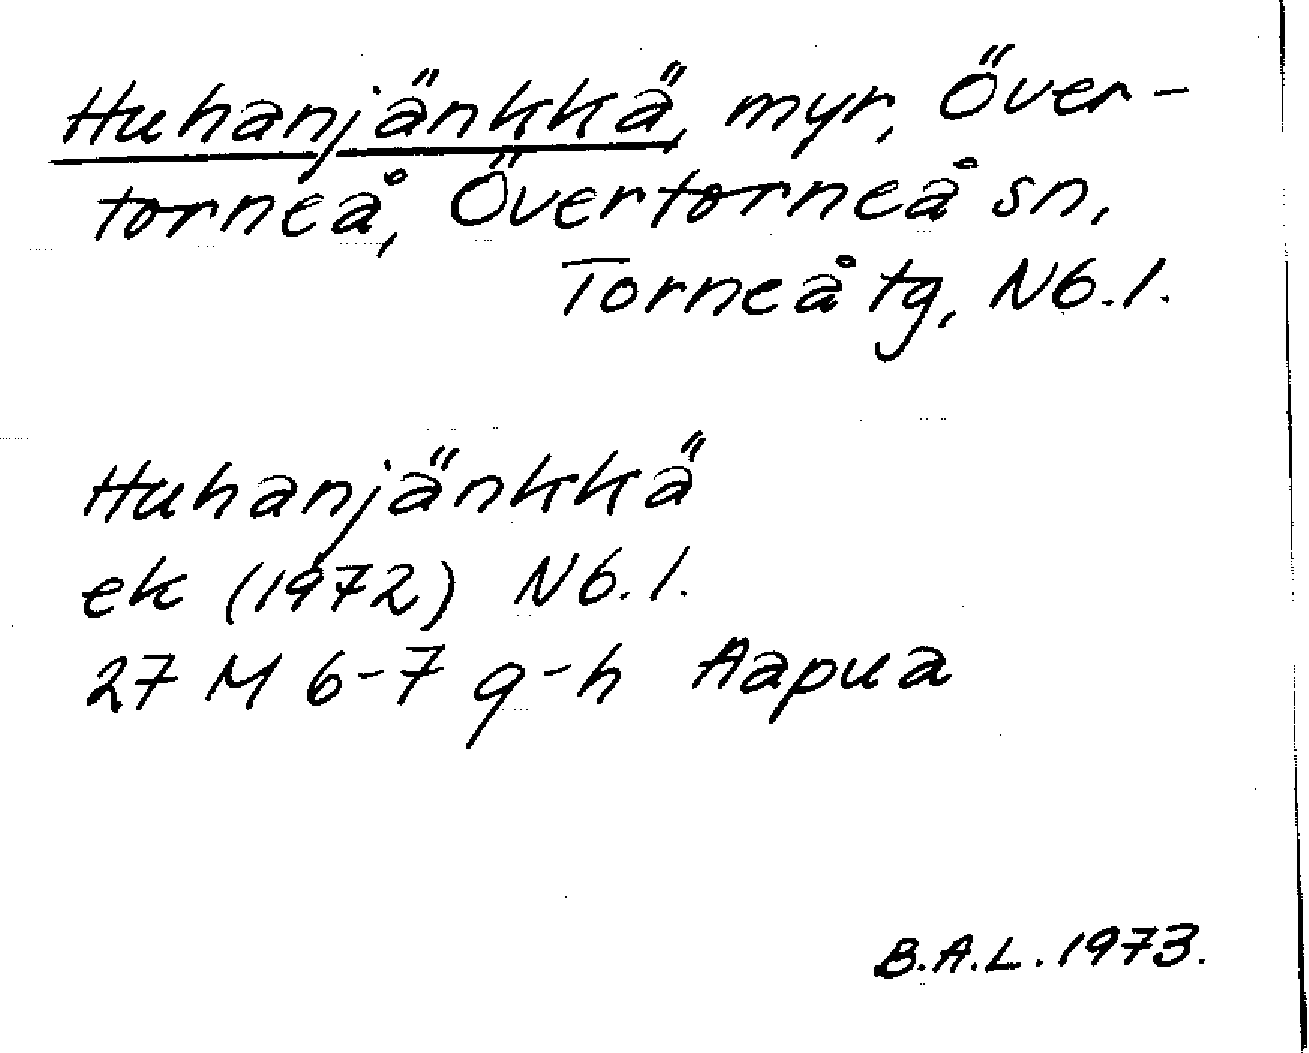 Huhanjänkkä, myr, Över-
torneå, Övertorneå sn,
Torneå tg, Nb.l.
Huhanjänkkä
ek (1972) Nb.l.
27 M 6-7 g-h Aapua
B.A.L. 1973.